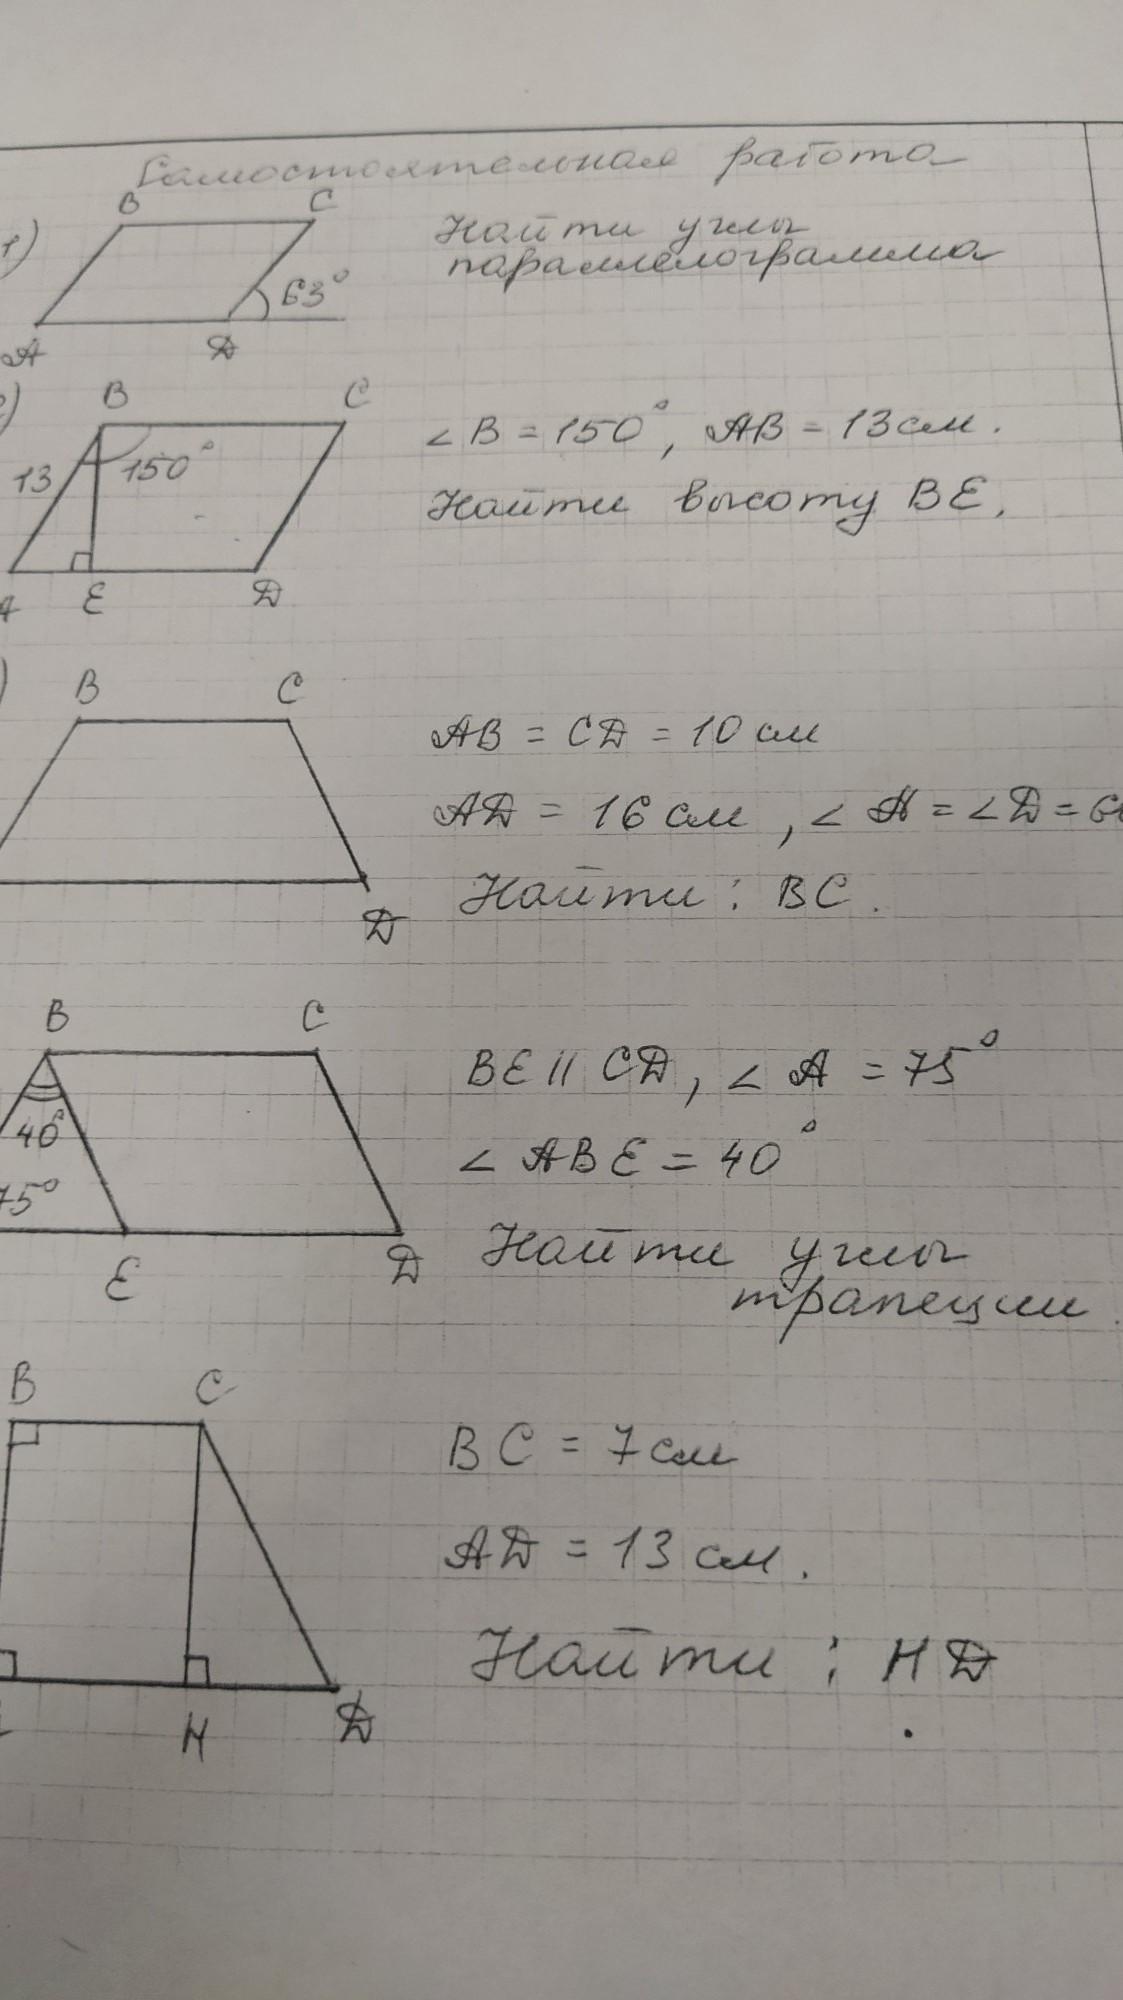 Самостоятельная работа
1)
B C
Найти углы
параллелограмма
63°
A D
B C
∠B = 150°, AB = 13 см.
13 150°
Найти высоту BE.
A E D
B C
AB = CD = 10 см
AD = 16 см, ∠A = ∠D = 6
Найти: BC.
D
B C
BE || CD, ∠A = 75°
40°
∠ABE = 40°
75°
Найти углы
E D
трапеции.
B C
BC = 7 см
AD = 13 см.
Найти: HD
H D